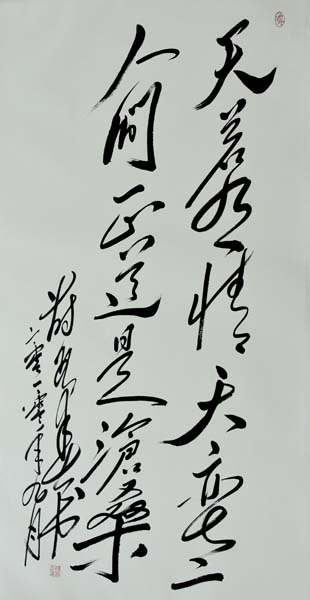 天若有情天亦老
人間正道是滄桑
二零一零年九月